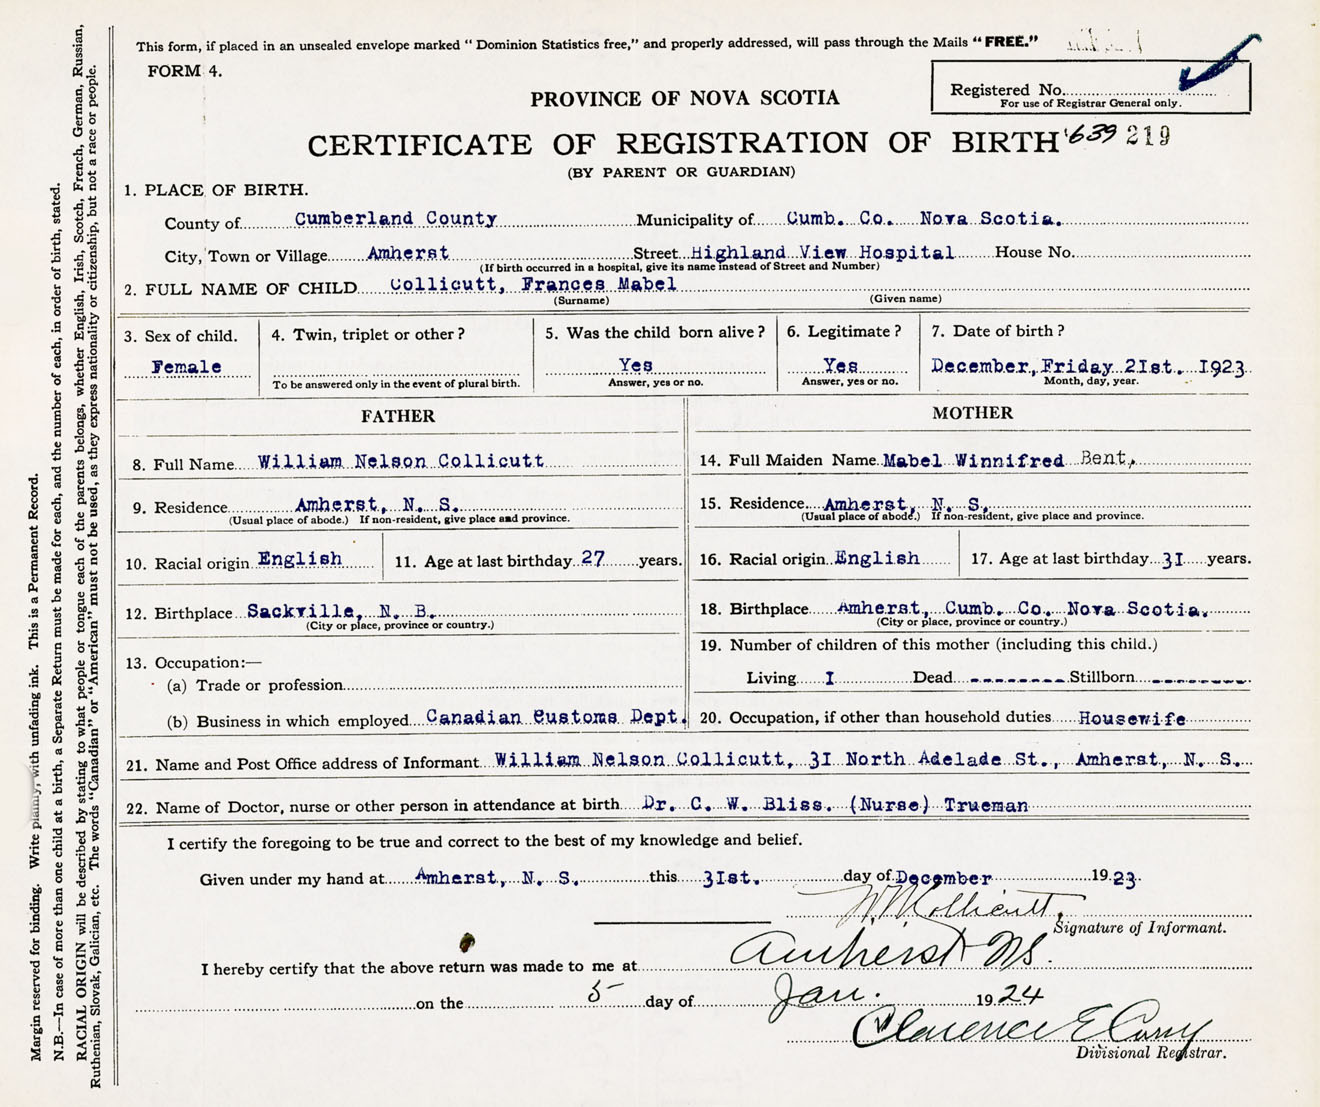 This form, if placed in an unsealed envelope marked "Dominion Statistics free," and properly addressed, will pass through the Mails "FREE."
FORM 4.
Registered No.
For use of Registrar General only.
PROVINCE OF NOVA SCOTIA
CERTIFICATE OF REGISTRATION OF BIRTH 639 219
(BY PARENT OR GUARDIAN)
1. PLACE OF BIRTH.
County of Cumberland County Municipality of Cumb. Co. Nova Scotia.
City, Town or Village Amherst Street Highland View Hospital House No.
(If birth occurred in a hospital, give its name instead of Street and Number)
2. FULL NAME OF CHILD Collicutt, Frances Mabel
(Surname) (Given name)
3. Sex of child. 4. Twin, triplet or other? 5. Was the child born alive? 6. Legitimate? 7. Date of birth?
Female Yes Yes December, Friday 21st. 1923
To be answered only in the event of plural birth. Answer, yes or no. Answer, yes or no. Month, day, year.
FATHER MOTHER
8. Full Name William Nelson Collicutt 14. Full Maiden Name Mabel Winnifred Bent,
9. Residence Amherst, N. S. 15. Residence Amherst, N. S.
(Usual place of abode.) If non-resident, give place and province. (Usual place of abode.) If non-resident, give place and province.
10. Racial origin English 11. Age at last birthday 27 years. 16. Racial origin English 17. Age at last birthday 31 years.
12. Birthplace Sackville, N. B. 18. Birthplace Amherst, Cumb. Co. Nova Scotia.
(City or place, province or country.) (City or place, province or country.)
19. Number of children of this mother (including this child.)
13. Occupation:—
(a) Trade or profession Living 1 Dead -------- Stillborn --------
(b) Business in which employed Canadian Customs Dept. 20. Occupation, if other than household duties Housewife
21. Name and Post Office address of Informant William Nelson Collicutt, 31 North Adelade St., Amherst, N. S.
22. Name of Doctor, nurse or other person in attendance at birth Dr. C. W. Bliss. (Nurse) Trueman
I certify the foregoing to be true and correct to the best of my knowledge and belief.
Given under my hand at Amherst, N. S. this 31st. day of December 1923.
W. N. Collicutt,
Signature of Informant.
I hereby certify that the above return was made to me at Amherst NS.
on the 5 day of Jan. 1924
Clarence E
Divisional Registrar.
Margin reserved for binding. Write plainly, with unfading ink. This is a Permanent Record.
N.B.—In case of more than one child at a birth, a Separate Return must be made for each, and the number of each, in order of birth, stated.
RACIAL ORIGIN will be described by stating to what people or tongue each of the parents belongs, whether English, Irish, Scotch, French, German, Russian,
Ruthenian, Slovak, Galician, etc. The words "Canadian" or "American" must not be used, as they express nationality or citizenship, but not a race or people.